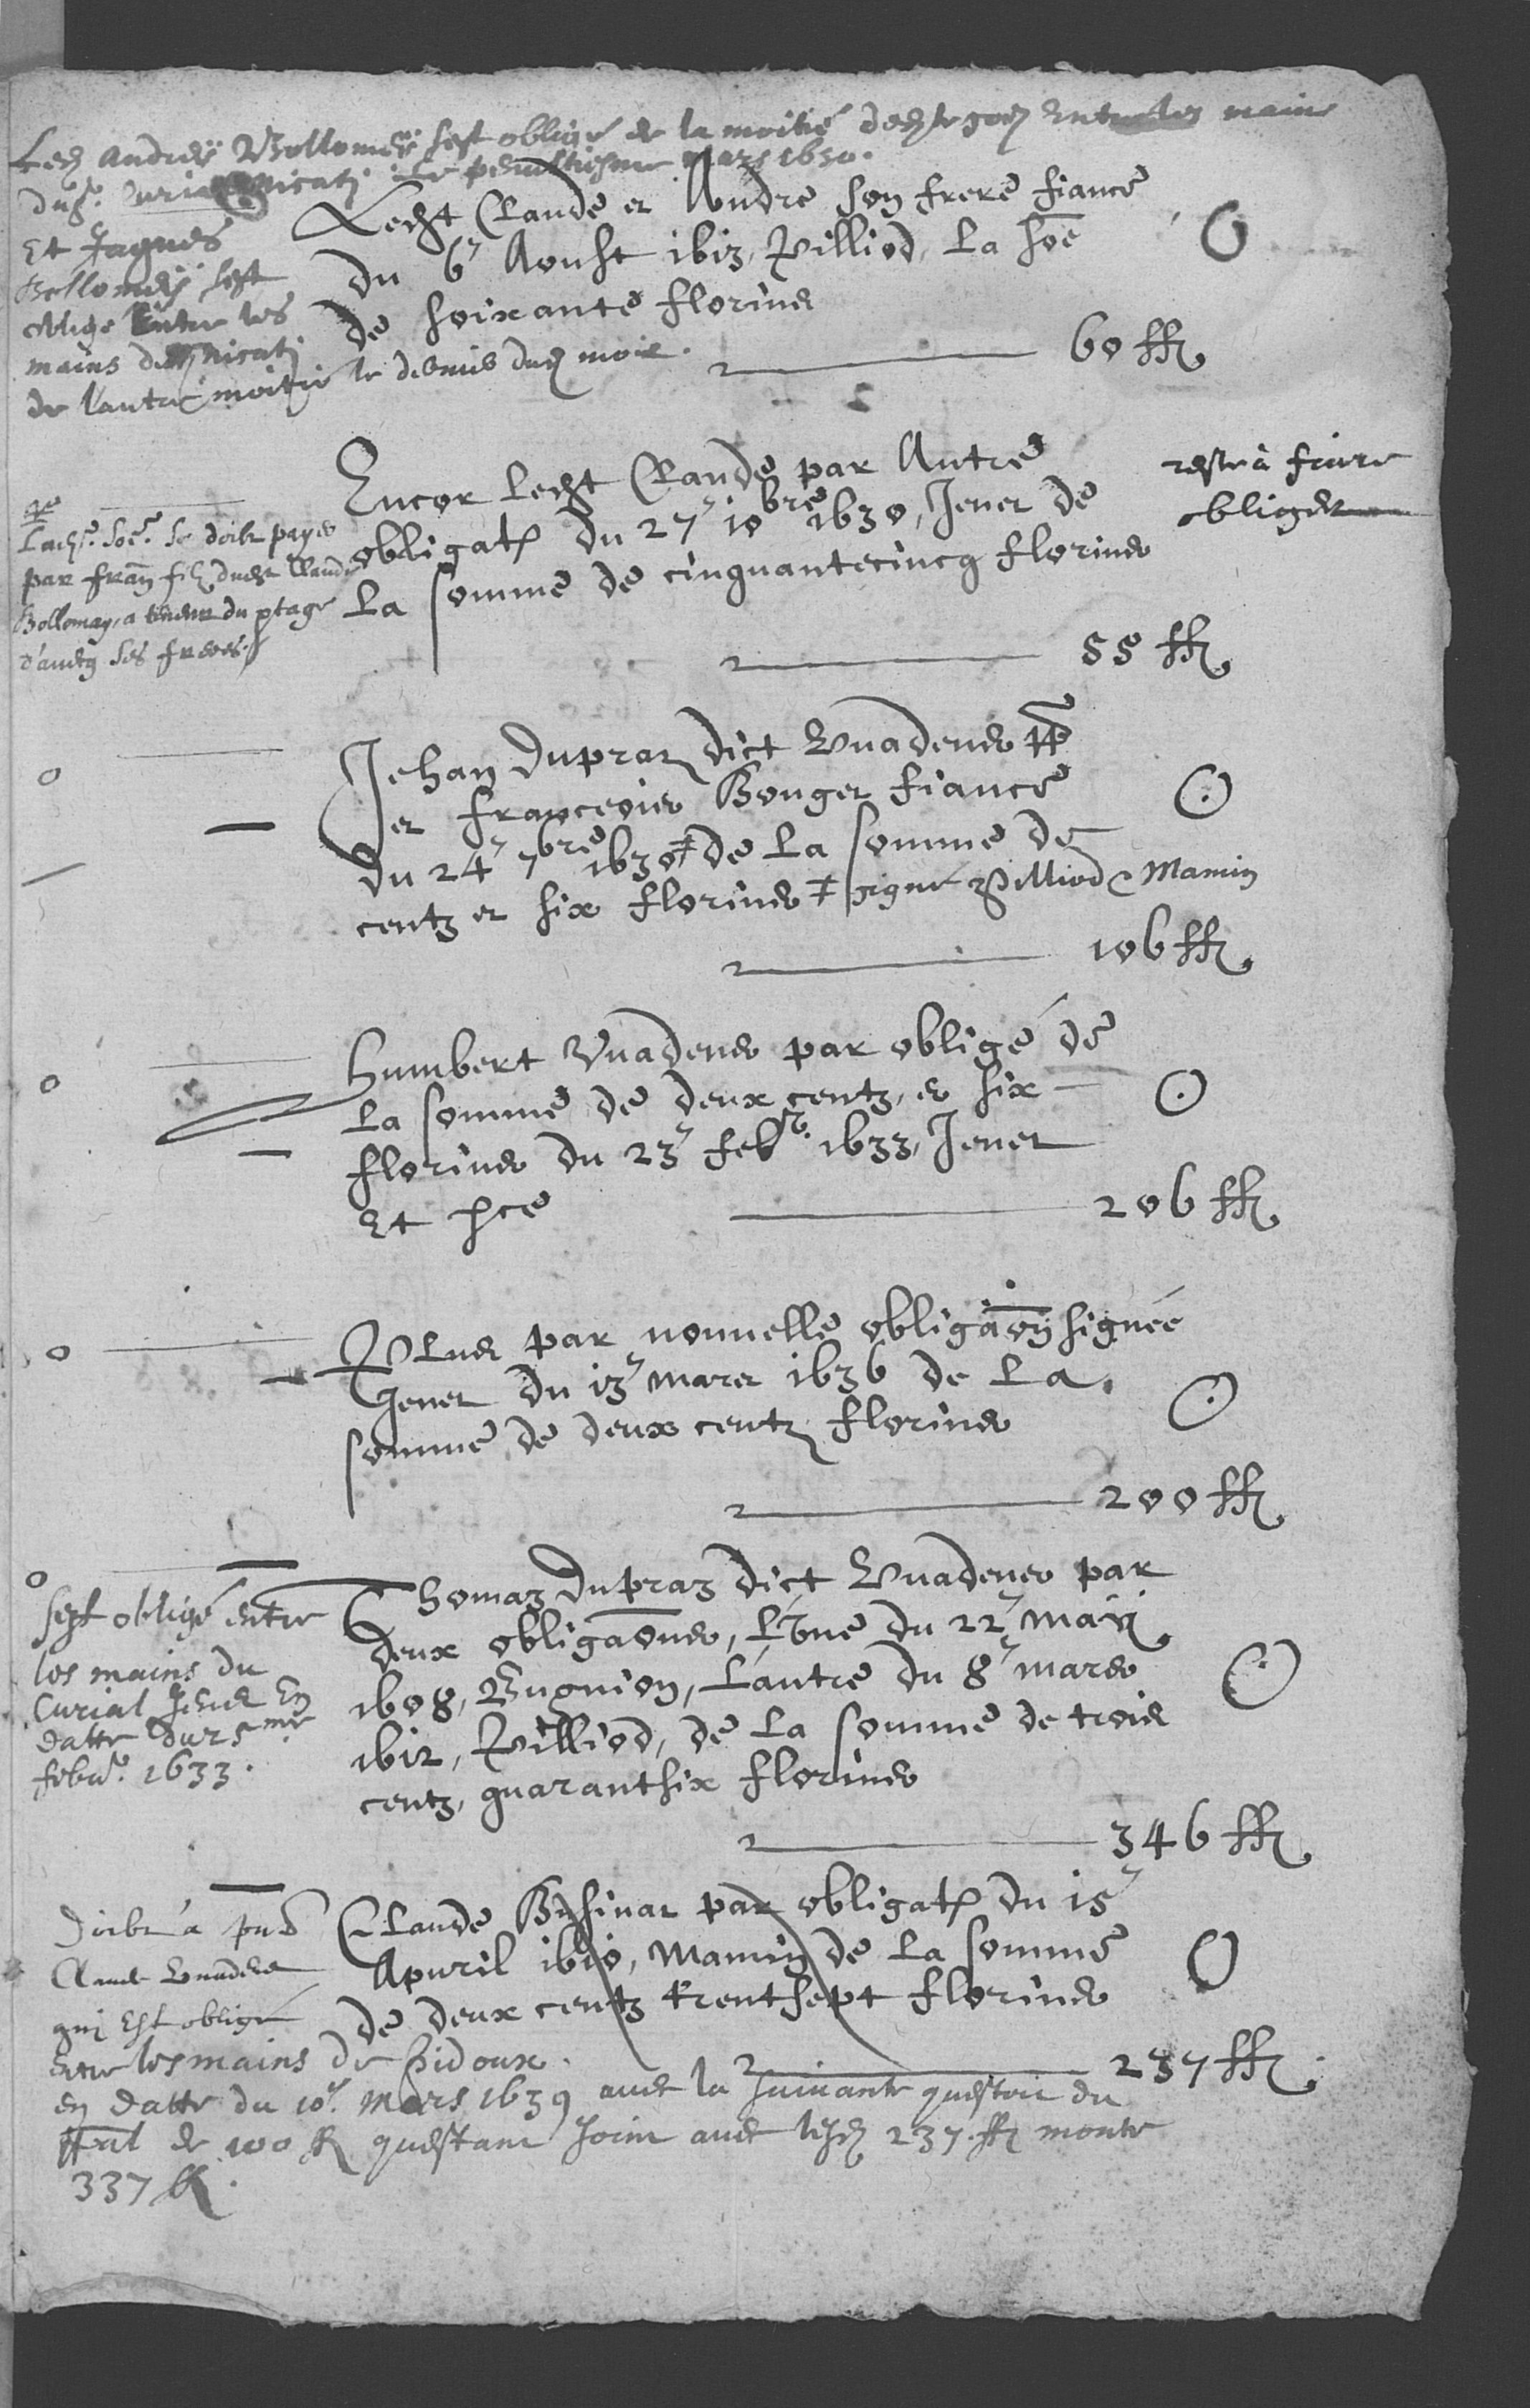 Led Andrey Vollomey sest obligé de la moitié
mains
du
penultiesme mars 1650.
Et Jaques
Bollomey sest
obligé Entre les
mains dud Nicati
de lautre moitié le dernier dud moix.
Ledit Claude et Andre son frere fiance
du 6 Aoust 1613, Pilliod, La soe
de soixante florins
60 ff
Encor ledit Claude par Autre
obligat du 27 10bre 1630, Jenet de
La somme de cinquantecincq florins
55 ff
reste à faire
obliger
Ladte. soe. se doibt payer
par fran filz dudit Claude
Bollomay, a teneur du ptage
d'aveq ses freres
Jehan Dupraz dict Vuadens
et Francois Bonget fiance
du 24 7bre 1630 de La somme de
centz et six florins signé Pilliod Mamin
106 ff
Humbert Vuadens par obligé de
La somme de deux centz, et six
florins du 23 feb. 1633, Jenet
Et sce
206 ff
Plus par nouvelle obligaon signée
Jenet du 13 mars 1636 de La
somme de deux centz florins
200 ff
Sest obligé entre
les mains du
Curial Jenet En
datte du 25me
febvr. 1633.
Thomaz Dupraz dict Vuadens par
deux obligaons, L'vne du 22 May
1608, Bugnion, L'autre du 8 mars
1612, Pilliod, de La somme de trois
centz, quaranthsix florins
346 ff
Doibt a pnt
Claude Vuadens
qui Est obligé
Entre les mains de Pidoux.
en datte du 10e Mars 1639 avec la suivante questoit du
de 100 ff questant joint avec lesd 237 ff monte
337 ff.
Claude Businat par obligat du 15
Apuril 1610, Mamin de La somme
de deux centz trentsept florins
237 ff